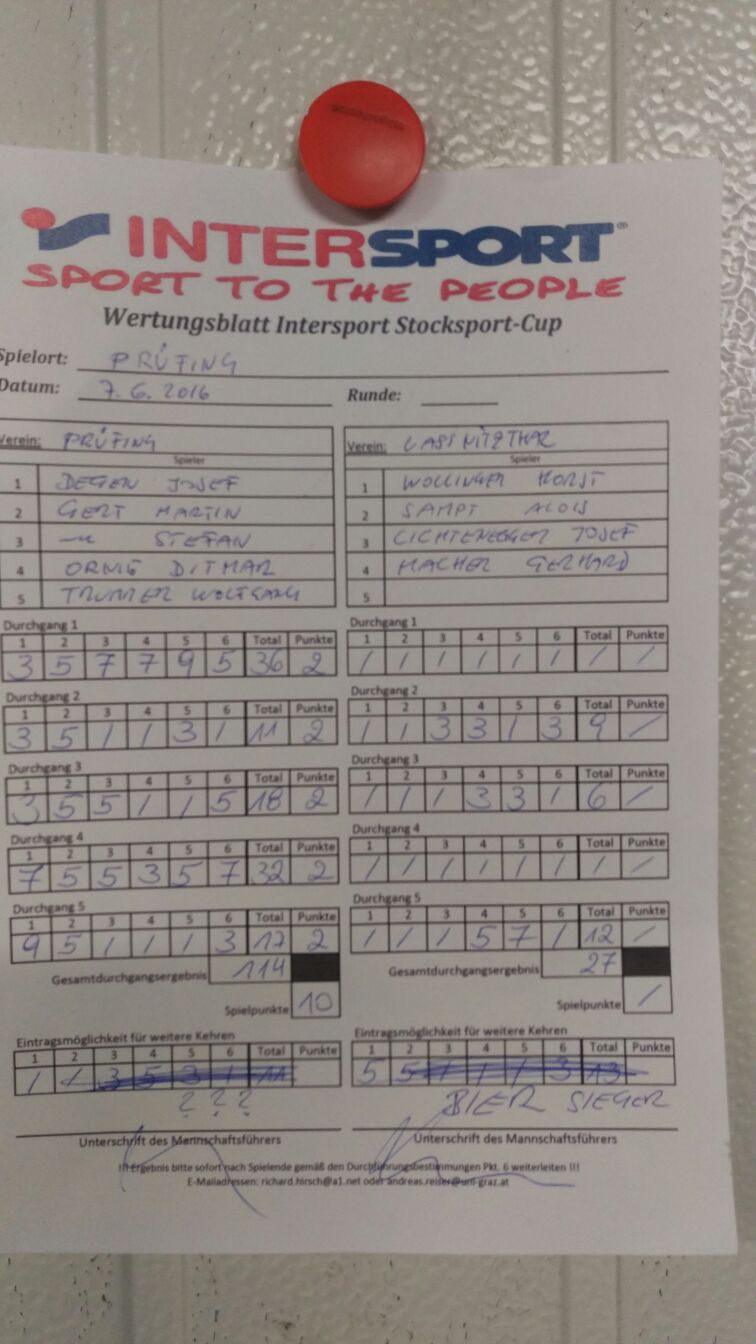 INTERSPORT®
SPORT TO THE PEOPLE
Wertungsblatt Intersport Stocksport-Cup
Spielort: PRÜFING
Datum: 7. 6. 2016 Runde:
Verein: PRÜFING
Spieler
1 DEGEN JOSEF
2 GERT MARTIN
3 -"- STEFAN
4 ORNIG DITMAR
5 TRUMMER WOLFGANG
Verein: LASSNITZTHAL
Spieler
1 WOLLINGER HORST
2 SAMPT ALOIS
3 LICHTENEGGER JOSEF
4 MACHER GERHARD
5
Durchgang 1
1 2 3 4 5 6 Total Punkte
3 5 7 7 9 5 36 2
Durchgang 1
1 2 3 4 5 6 Total Punkte
/ / / / / / / /
Durchgang 2
1 2 3 4 5 6 Total Punkte
3 5 / / 3 / 11 2
Durchgang 2
1 2 3 4 5 6 Total Punkte
/ / 3 3 / 3 9 /
Durchgang 3
1 2 3 4 5 6 Total Punkte
3 5 5 / / 5 18 2
Durchgang 3
1 2 3 4 5 6 Total Punkte
/ / / 3 3 / 6 /
Durchgang 4
1 2 3 4 5 6 Total Punkte
7 5 5 3 5 7 32 2
Durchgang 4
1 2 3 4 5 6 Total Punkte
/ / / / / / / /
Durchgang 5
1 2 3 4 5 6 Total Punkte
9 5 / / / 3 17 2
Gesamtdurchgangsergebnis 114
Spielpunkte 10
Durchgang 5
1 2 3 4 5 6 Total Punkte
/ / / 5 7 / 12 /
Gesamtdurchgangsergebnis 27
Spielpunkte /
Eintragsmöglichkeit für weitere Kehren
1 2 3 4 5 6 Total Punkte
/ / 3 5 3 / 11
? ? ?
Eintragsmöglichkeit für weitere Kehren
1 2 3 4 5 6 Total Punkte
5 5 / / / 3 13
BIER SIEGER
Unterschrift des Mannschaftsführers
Unterschrift des Mannschaftsführers
!!! Ergebnis bitte sofort nach Spielende gemäß den Durchführungsbestimmungen Pkt. 6 weiterleiten !!!
E-Mailadressen: richard.hirsch@a1.net oder andreas.reiser@uni-graz.at